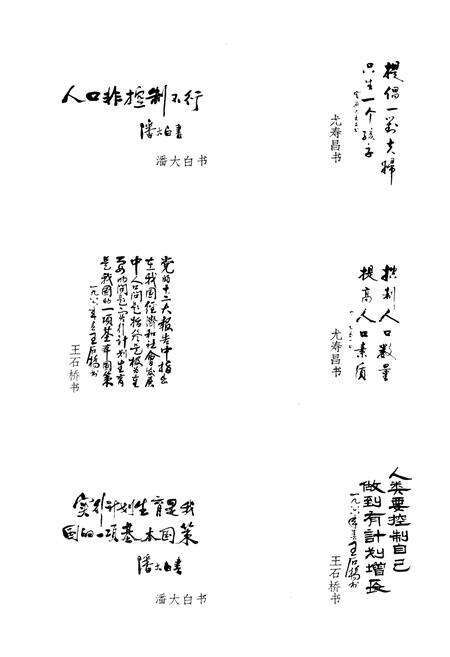 人口非控制不行
潘大白書
潘大白书
提倡一对夫婦
只生一个孩子
尤寿昌书
党的十二大报告中指出
在我国经济和社会发展
中人口问题始终是极为重
要的问题实行计划生育
是我国的一项基本国策
王石桥书
控制人口数量
提高人口素质
尤寿昌书
实行计划生育是我
国的一项基本国策
潘大白書
潘大白书
人类要控制自己
做到有計划增長
王石桥书